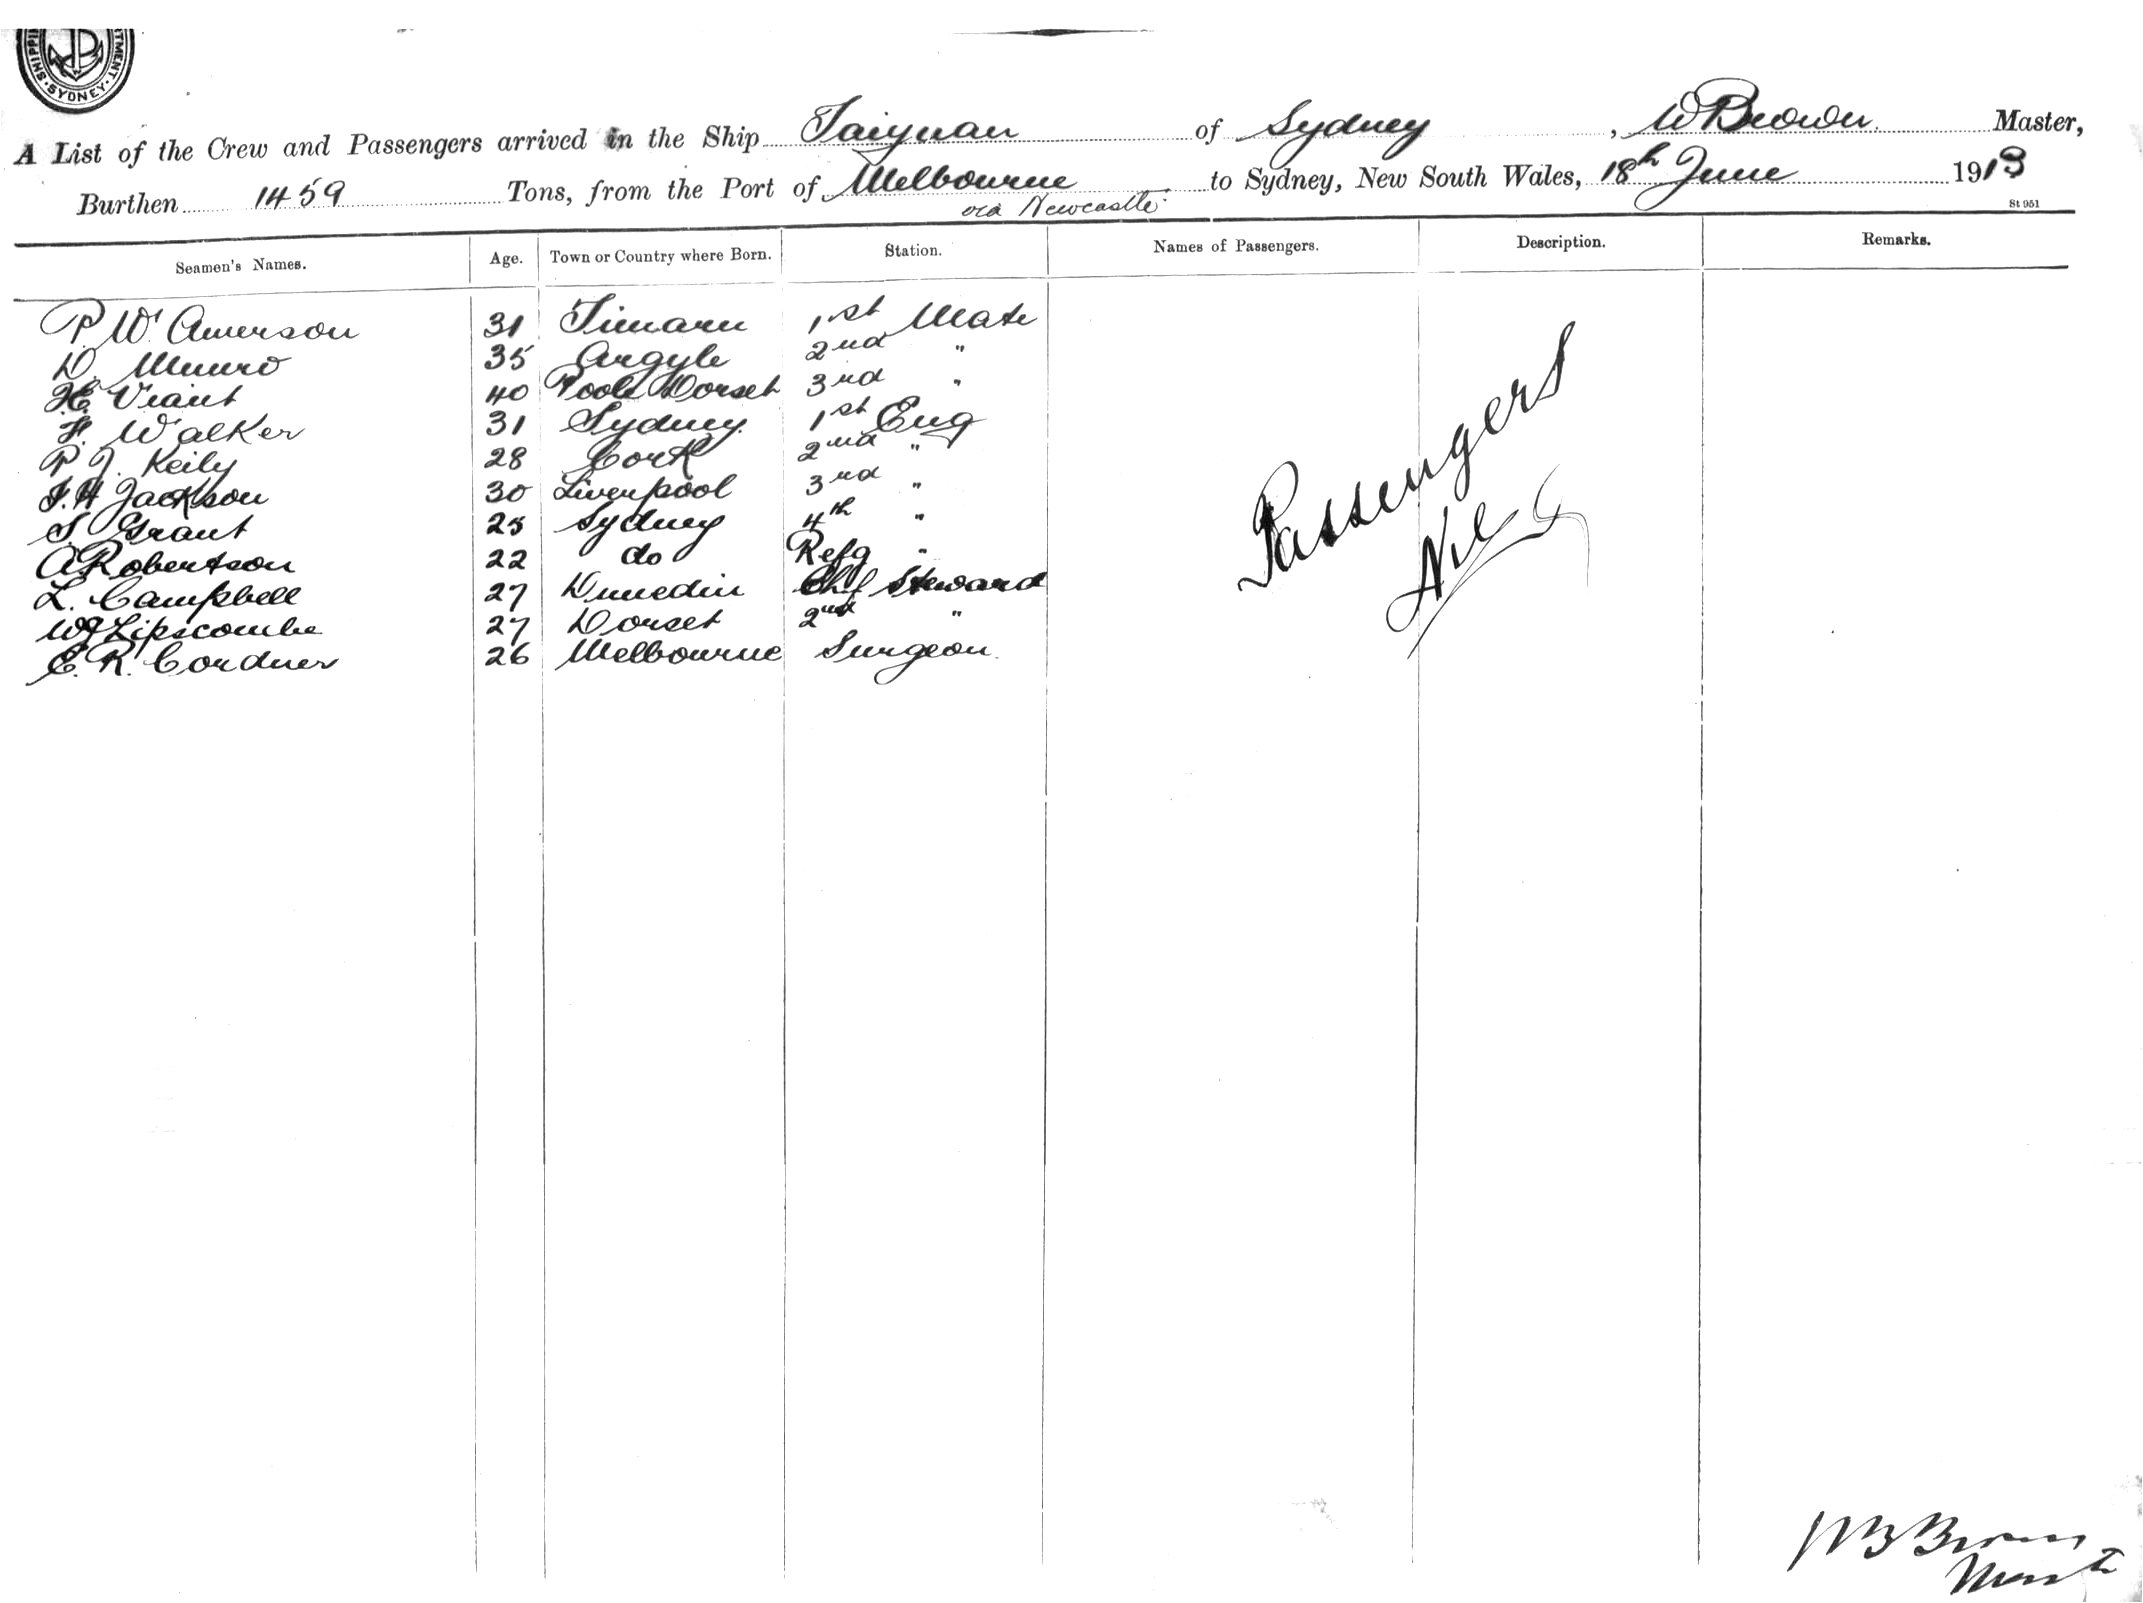 SHIPPI TMENT · SYDNEY ·
A List of the Crew and Passengers arrived in the Ship Taiyuan of Sydney, W Brown. Master,
Burthen 1459 Tons, from the Port of Melbourne to Sydney, New South Wales, 18th June 1913
via Newcastle.
St 951
Seamen's Names. Age. Town or Country where Born. Station. Names of Passengers. Description. Remarks.
P. W. Amerson 31 Timaru 1st Mate
D. Munro 35 Argyle 2nd "
H.E. Viant 40 Poole Dorset 3rd "
F. Walker 31 Sydney 1st Eng
P J. Keily 28 Cork 2nd "
J. H Jackson 30 Liverpool 3rd "
S. Grant 25 Sydney 4th "
A Robertson 22 do Refg "
L. Campbell 27 Dunedin Chf Steward
WJ Lipscombe 27 Dorset 2nd "
E. R. Cordner 26 Melbourne Surgeon.
Passengers
Nil
Brown